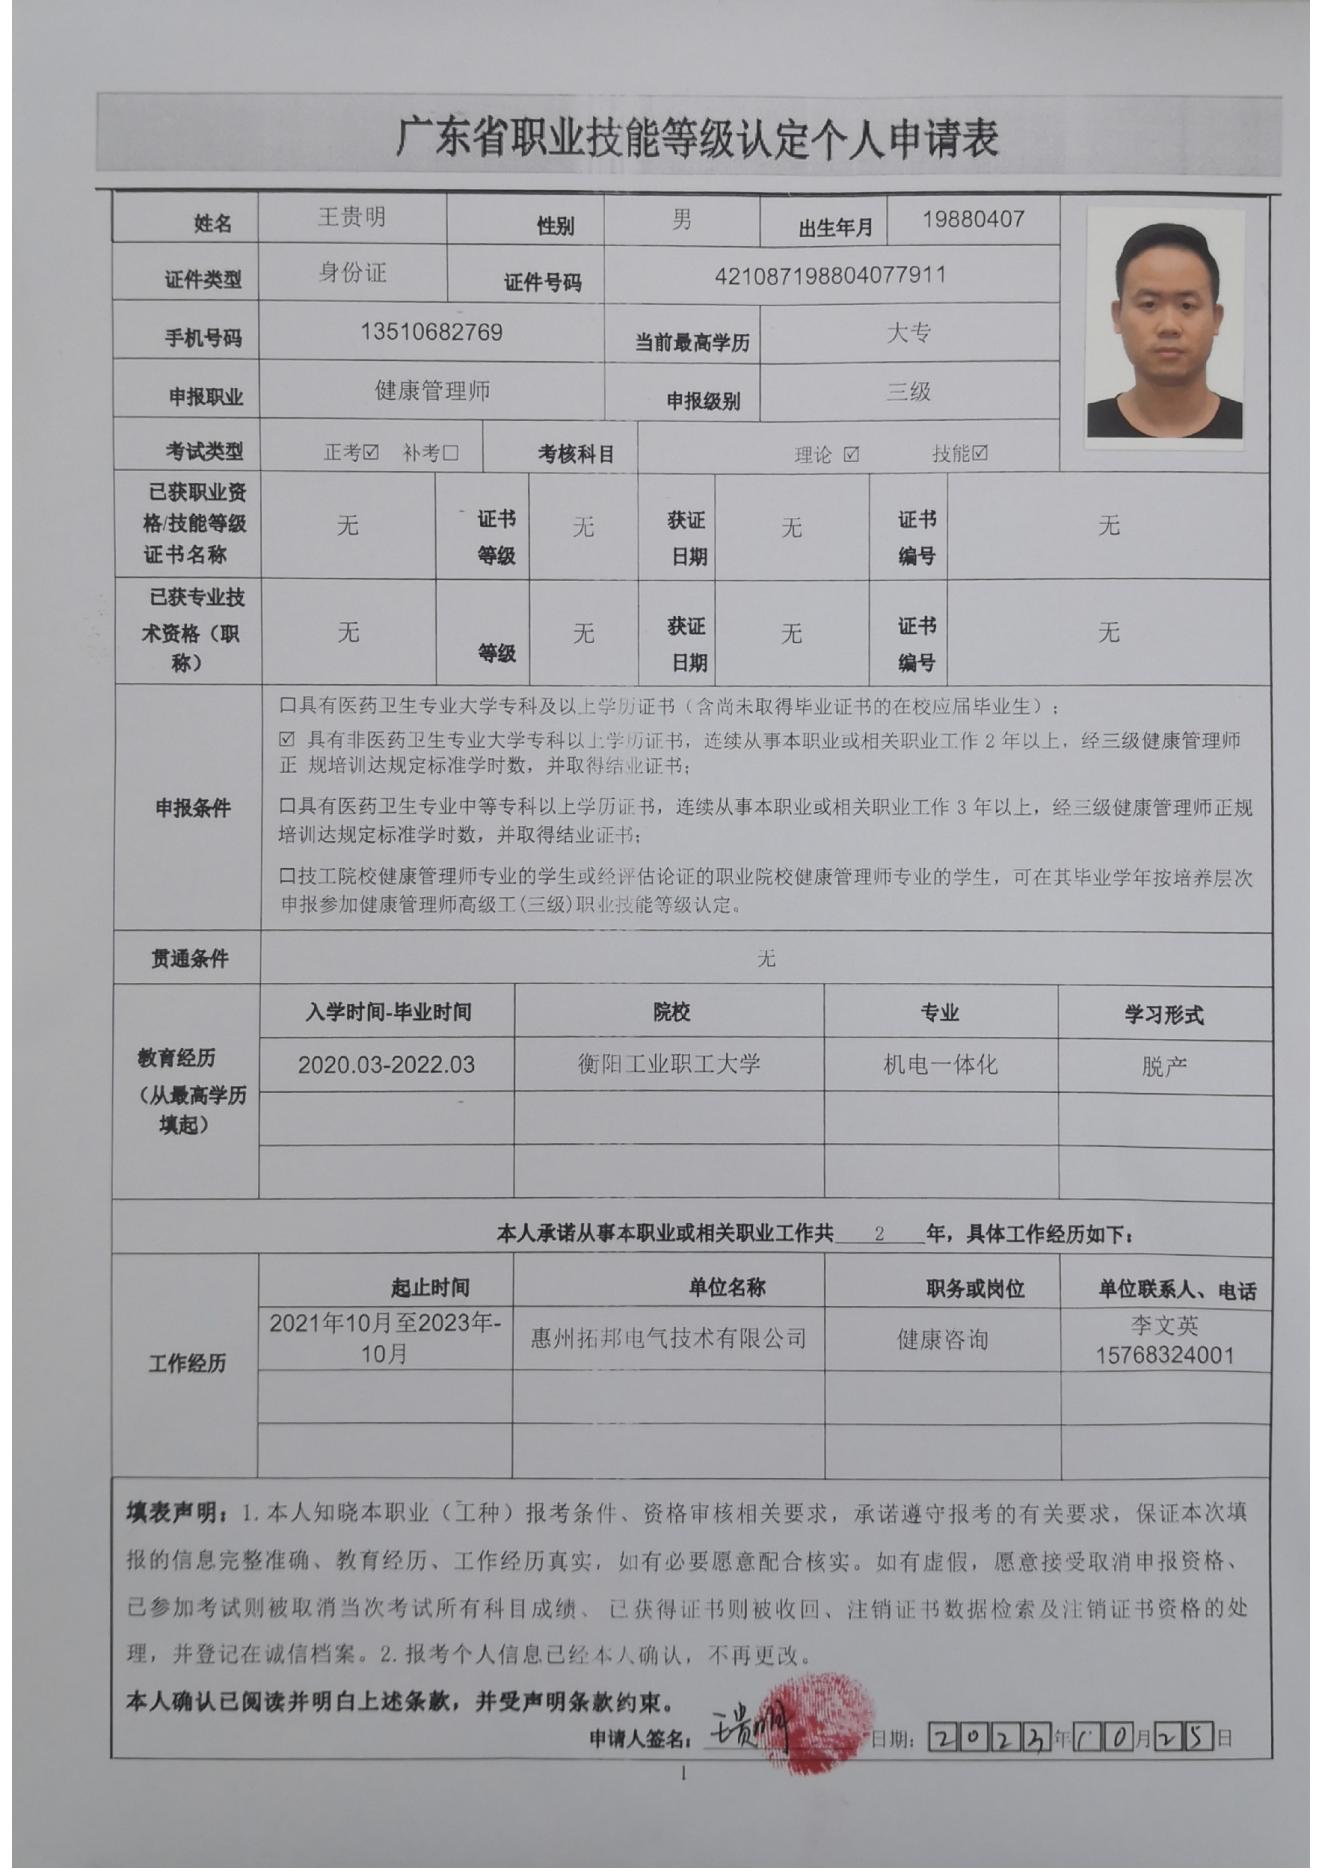 广东省职业技能等级认定个人申请表
姓名 王贵明 性别 男 出生年月 19880407
证件类型 身份证 证件号码 421087198804077911
手机号码 13510682769 当前最高学历 大专
申报职业 健康管理师 申报级别 三级
考试类型 正考☑ 补考☐ 考核科目 理论 ☑ 技能☑
已获职业资
格/技能等级
证书名称
无
证书
等级
无
获证
日期
无
证书
编号
无
已获专业技
术资格（职
称）
无
等级
无
获证
日期
无
证书
编号
无
申报条件
口具有医药卫生专业大学专科及以上学历证书（含尚未取得毕业证书的在校应届毕业生）；
☑ 具有非医药卫生专业大学专科以上学历证书，连续从事本职业或相关职业工作 2 年以上，经三级健康管理师
正 规培训达规定标准学时数，并取得结业证书；
口具有医药卫生专业中等专科以上学历证书，连续从事本职业或相关职业工作 3 年以上，经三级健康管理师正规
培训达规定标准学时数，并取得结业证书；
口技工院校健康管理师专业的学生或经评估论证的职业院校健康管理师专业的学生，可在其毕业学年按培养层次
申报参加健康管理师高级工(三级)职业技能等级认定。
贯通条件 无
教育经历
（从最高学历
填起）
入学时间-毕业时间 院校 专业 学习形式
2020.03-2022.03 衡阳工业职工大学 机电一体化 脱产
本人承诺从事本职业或相关职业工作共 2 年，具体工作经历如下：
工作经历
起止时间 单位名称 职务或岗位 单位联系人、电话
2021年10月至2023年-
10月
惠州拓邦电气技术有限公司
健康咨询
李文英
15768324001
填表声明：1.本人知晓本职业（工种）报考条件、资格审核相关要求，承诺遵守报考的有关要求，保证本次填
报的信息完整准确、教育经历、工作经历真实，如有必要愿意配合核实。如有虚假，愿意接受取消申报资格、
已参加考试则被取消当次考试所有科目成绩、 已获得证书则被收回、注销证书数据检索及注销证书资格的处
理，并登记在诚信档案。2.报考个人信息已经本人确认，不再更改。
本人确认已阅读并明白上述条款，并受声明条款约束。
申请人签名： 王贵明 日期：2023年10月25日
1